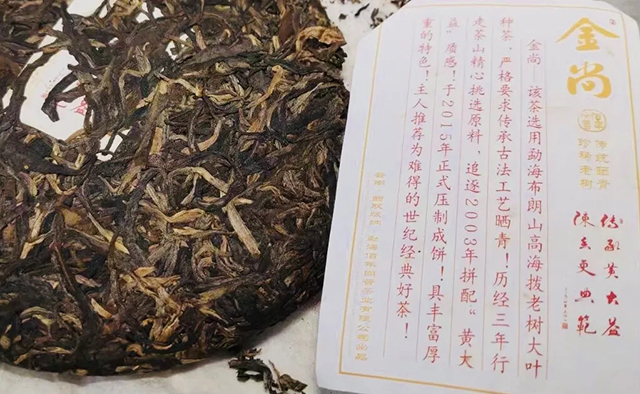 金尚
传统晒青
珍稀老树
金尚——该茶选用勐海布朗山高海拔老树大叶
种茶，严格要求传承古法工艺晒青！历经三年行
走茶山精心挑选原料，追逐2003年拼配“黄大
益”质感！于2015年正式压制成饼！具丰富厚
重的特色！主人推荐为难得的世纪经典好茶！
黄大益
陈香更典範